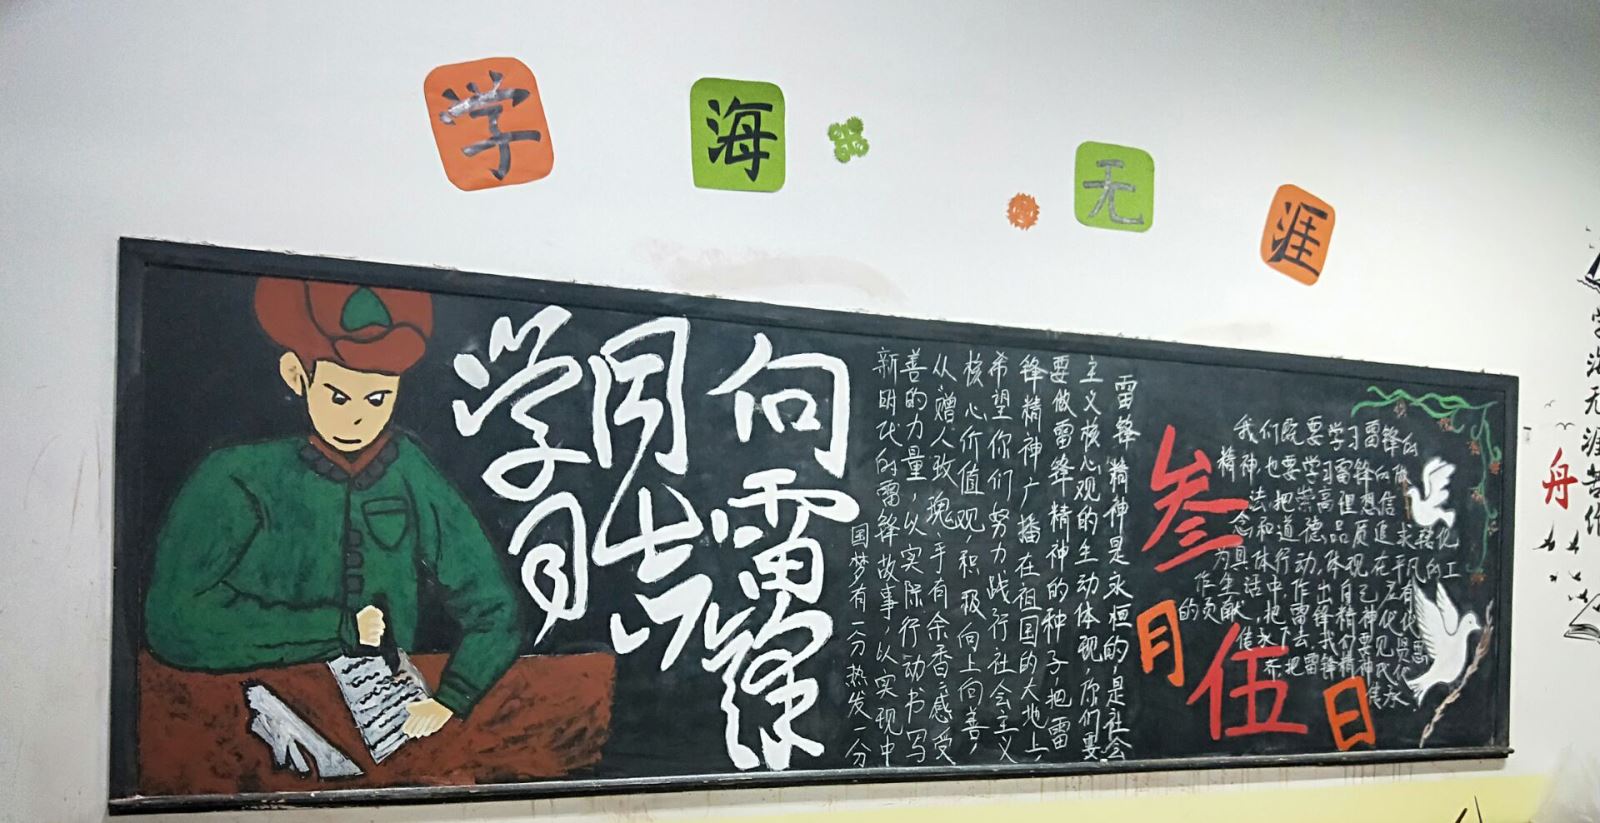 学海无涯
向雷锋
同志
学习
雷锋精神是永恒的,是社会
主义核心观的生动体现,你们要
要做雷锋精神的种子把雷
锋精神广播在祖国的大地上,
希望你们努力践行社会主义
核心价值观,积极向上向善,
从赠人玫瑰,手有余香感受
善的力量,以实际行动书写
新时代的雷锋故事,以实现中
国梦有一分热发一分
叁
月
伍
日
我们既要学习雷锋的
精神也要学习雷锋的做
法把崇高理想信
念和道德品质追求转化
为具体行动,体现在平凡的工
学海无涯苦作
舟